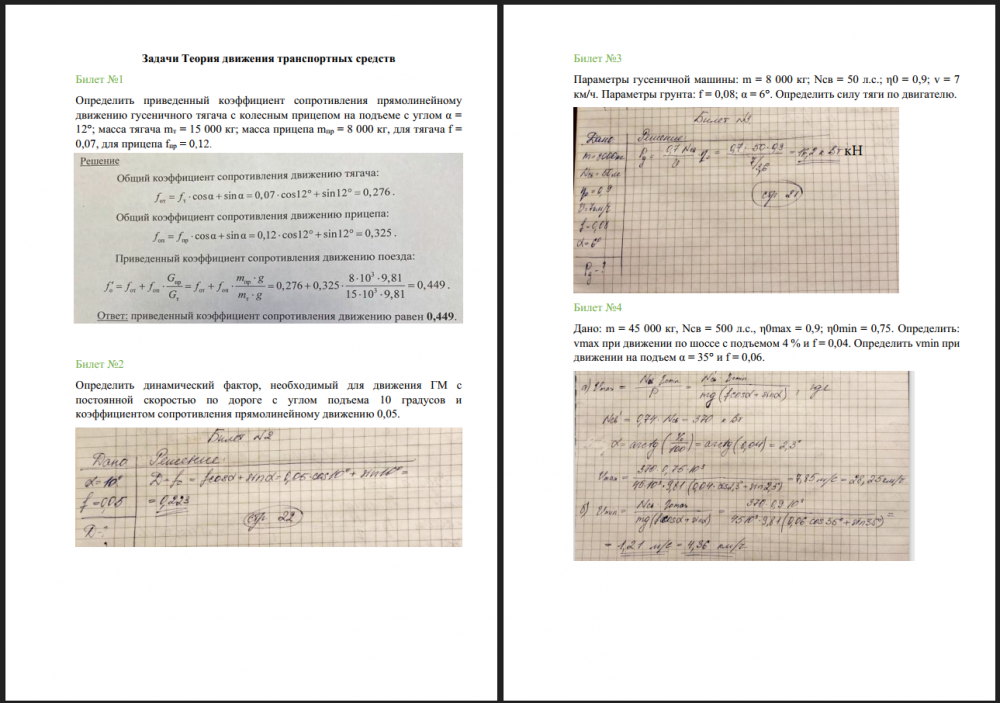 Задачи Теория движения транспортных средств
Билет №1
Определить приведенный коэффициент сопротивления прямолинейному
движению гусеничного тягача с колесным прицепом на подъеме с углом α =
12°; масса тягача mт = 15 000 кг; масса прицепа mпр = 8 000 кг, для тягача f =
0,07, для прицепа fпр = 0,12.
Решение
Общий коэффициент сопротивления движению тягача:
fот = fт · cos α + sin α = 0,07 · cos12° + sin12° = 0,276 .
Общий коэффициент сопротивления движению прицепа:
fоп = fпр · cos α + sin α = 0,12 · cos12° + sin12° = 0,325 .
Приведенный коэффициент сопротивления движению поезда:
fо* = fот + fоп · Gпр/Gт = fот + fоп · mпр · g/mт · g = 0,276 + 0,325 · 8·10³·9,81/15·10³·9,81 = 0,449 .
Ответ: приведенный коэффициент сопротивления движению равен 0,449.
Билет №2
Определить динамический фактор, необходимый для движения ГМ с
постоянной скоростью по дороге с углом подъема 10 градусов и
коэффициентом сопротивления прямолинейному движению 0,05.
Билет №2
Дано Решение:
α=10° D = fo = fcosα + sinα = 0,05·cos10° + sin10° =
f=0,05 = 0,223
D-? стр. 22
Билет №3
Параметры гусеничной машины: m = 8 000 кг; Nсв = 50 л.с.; η0 = 0,9; v = 7
км/ч. Параметры грунта: f = 0,08; α = 6°. Определить силу тяги по двигателю.
Дано Решение
m=8000кг
= 16,2 кВт кН
f=0,08
α=6°
Pg-?
Билет №4
Дано: m = 45 000 кг, Nсв = 500 л.с., η0max = 0,9; η0min = 0,75. Определить:
vmax при движении по шоссе с подъемом 4 % и f = 0,04. Определить vmin при
движении на подъем α = 35° и f = 0,06.
mg(fcosα+sinα) , где
Nсв' = 0,74 · Nсв = 370 кВт
α = arctg (%/100) = arctg (0,04) = 2,3°
= 7,85 м/с = 28,25 км/ч
= 1,21 м/с = 4,36 км/ч